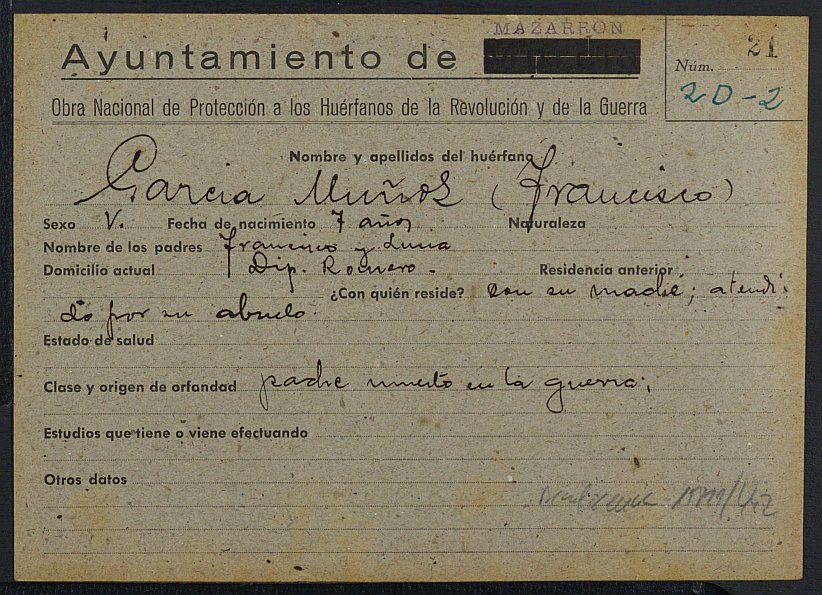 MAZARRON
Ayuntamiento de
Núm. 21
20-2
Obra Nacional de Protección a los Huérfanos de la Revolución y de la Guerra
Nombre y apellidos del huérfano
Garcia Muñoz (Francisco)
Sexo V. Fecha de nacimiento 7 años Naturaleza
Nombre de los padres Francisco y
Domicilio actual Dip. Romero. Residencia anterior
¿Con quién reside? con su madre; atendi-
do por su abuelo.
Estado de salud
Clase y origen de orfandad padre muerto en la guerra;
Estudios que tiene o viene efectuando
Otros datos